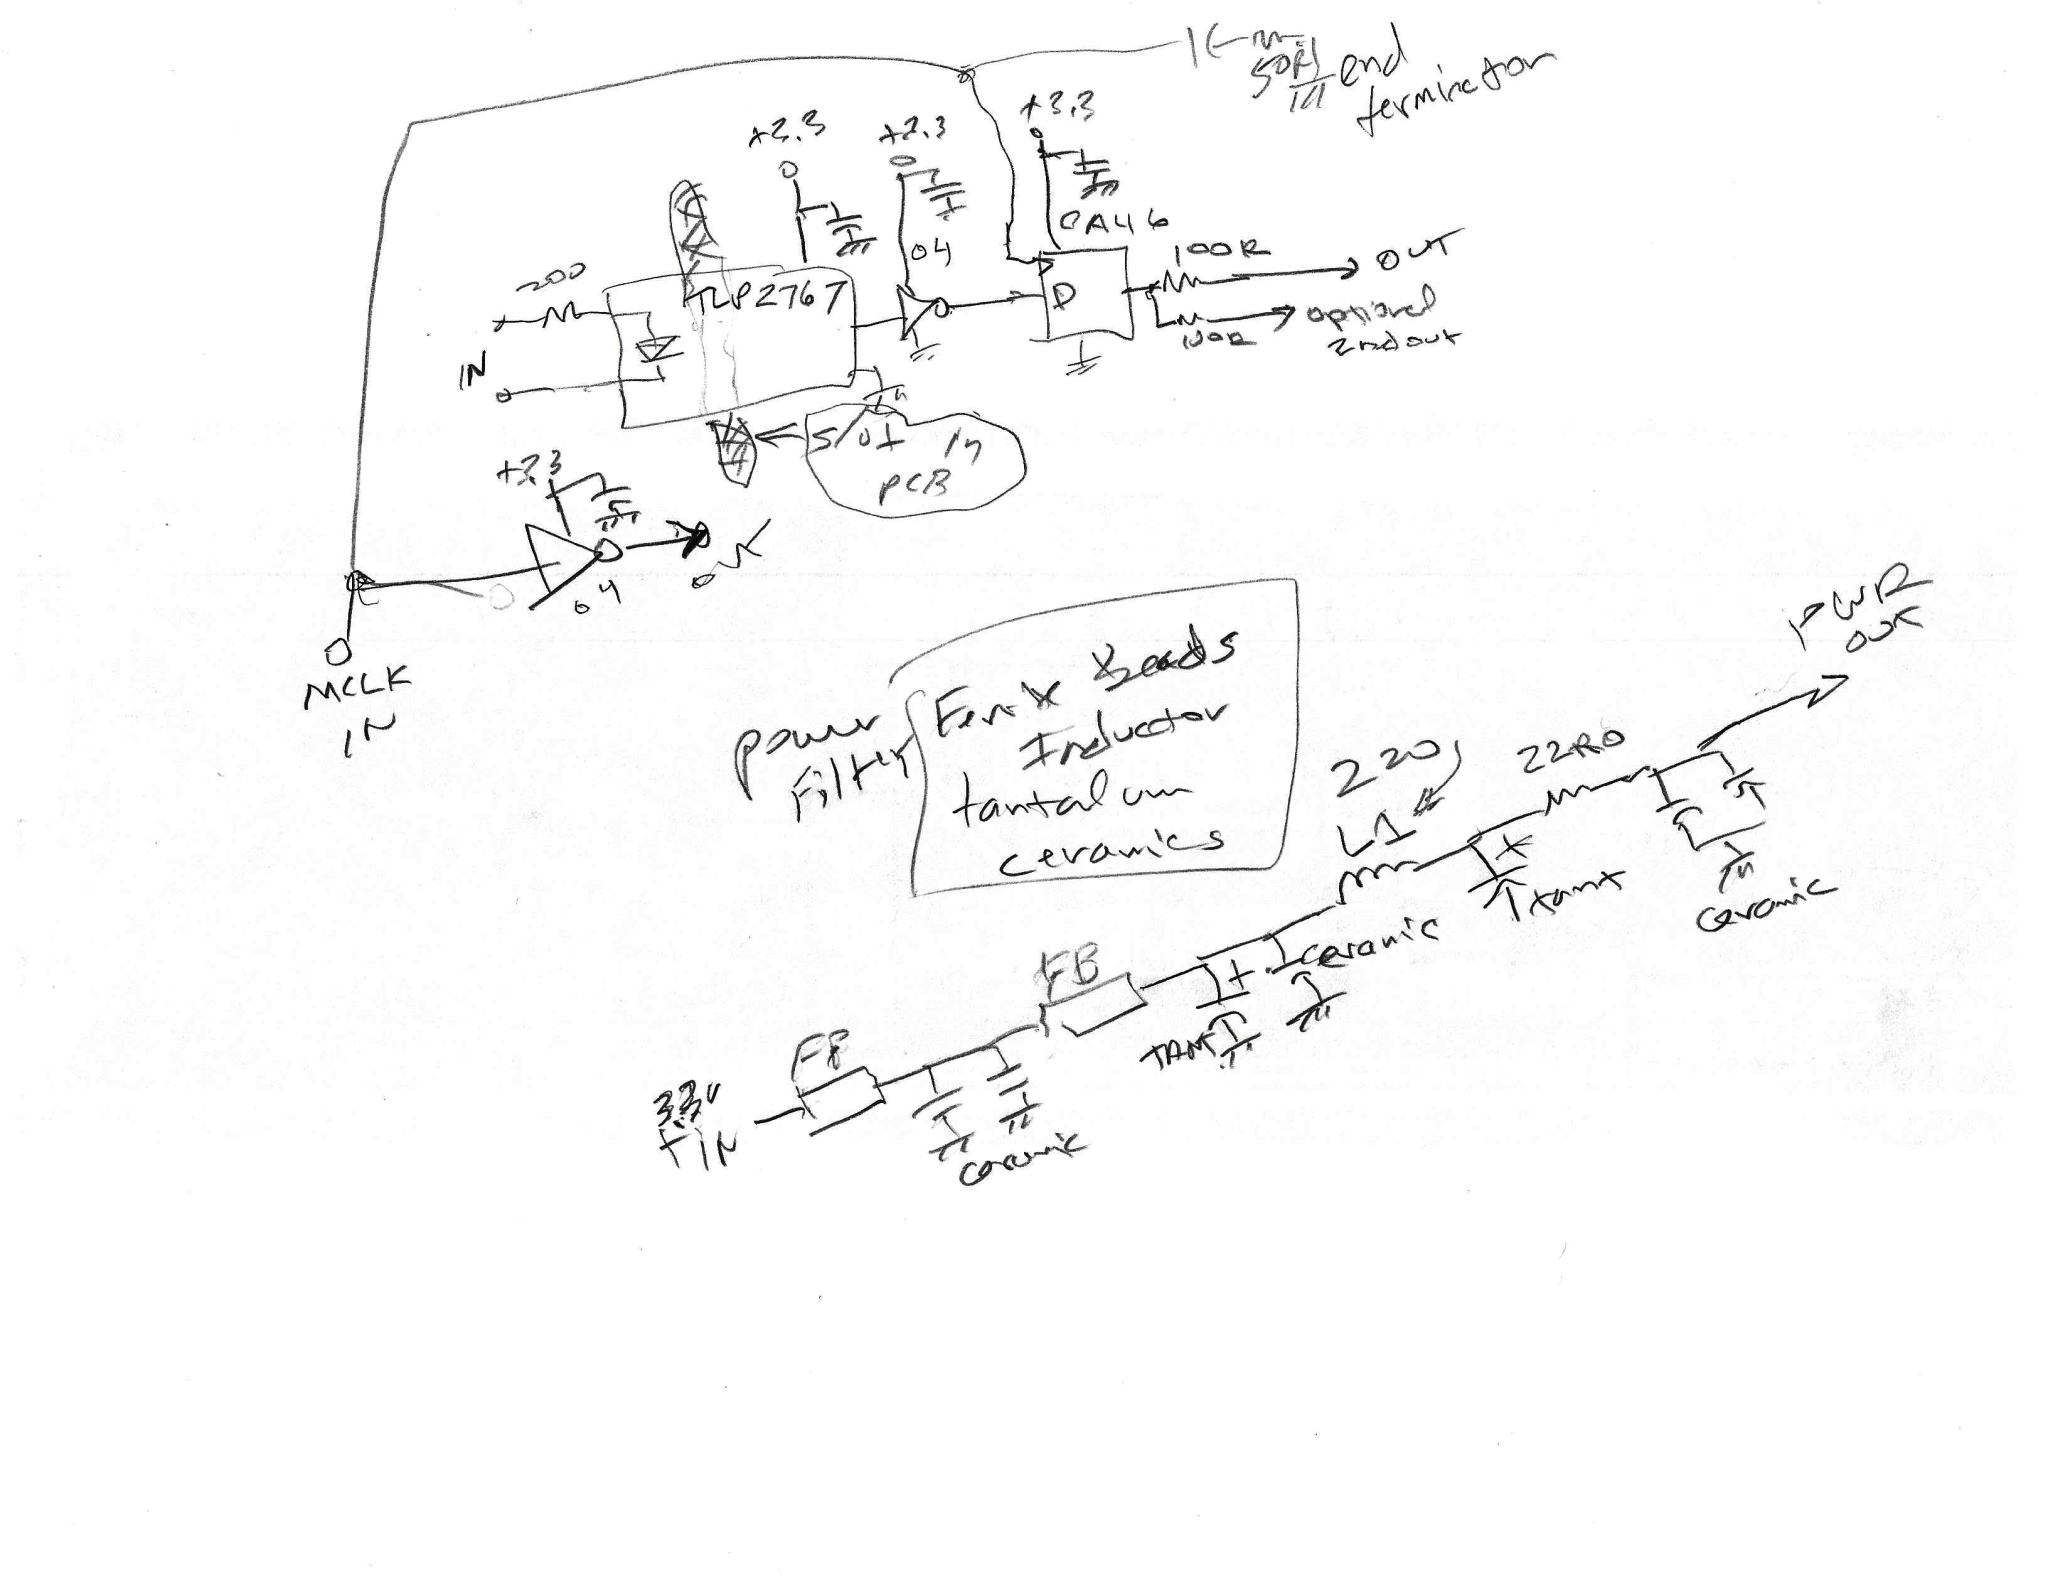 50R
end
terminator
+3.3
+3.3
+3.3
04
CA46
200
TLP2767
D
100R
OUT
100R
optional
2nd out
IN
slot in
PCB
+3.3
04
out
MCLK
IN
power
Filter
Ferrix Beads
Inductor
tantalum
ceramics
PWR
OUT
220
L1
22R0
+
tant
ceramic
ceramic
FB
+
TANT
FB
3.3V
+IN
ceramic